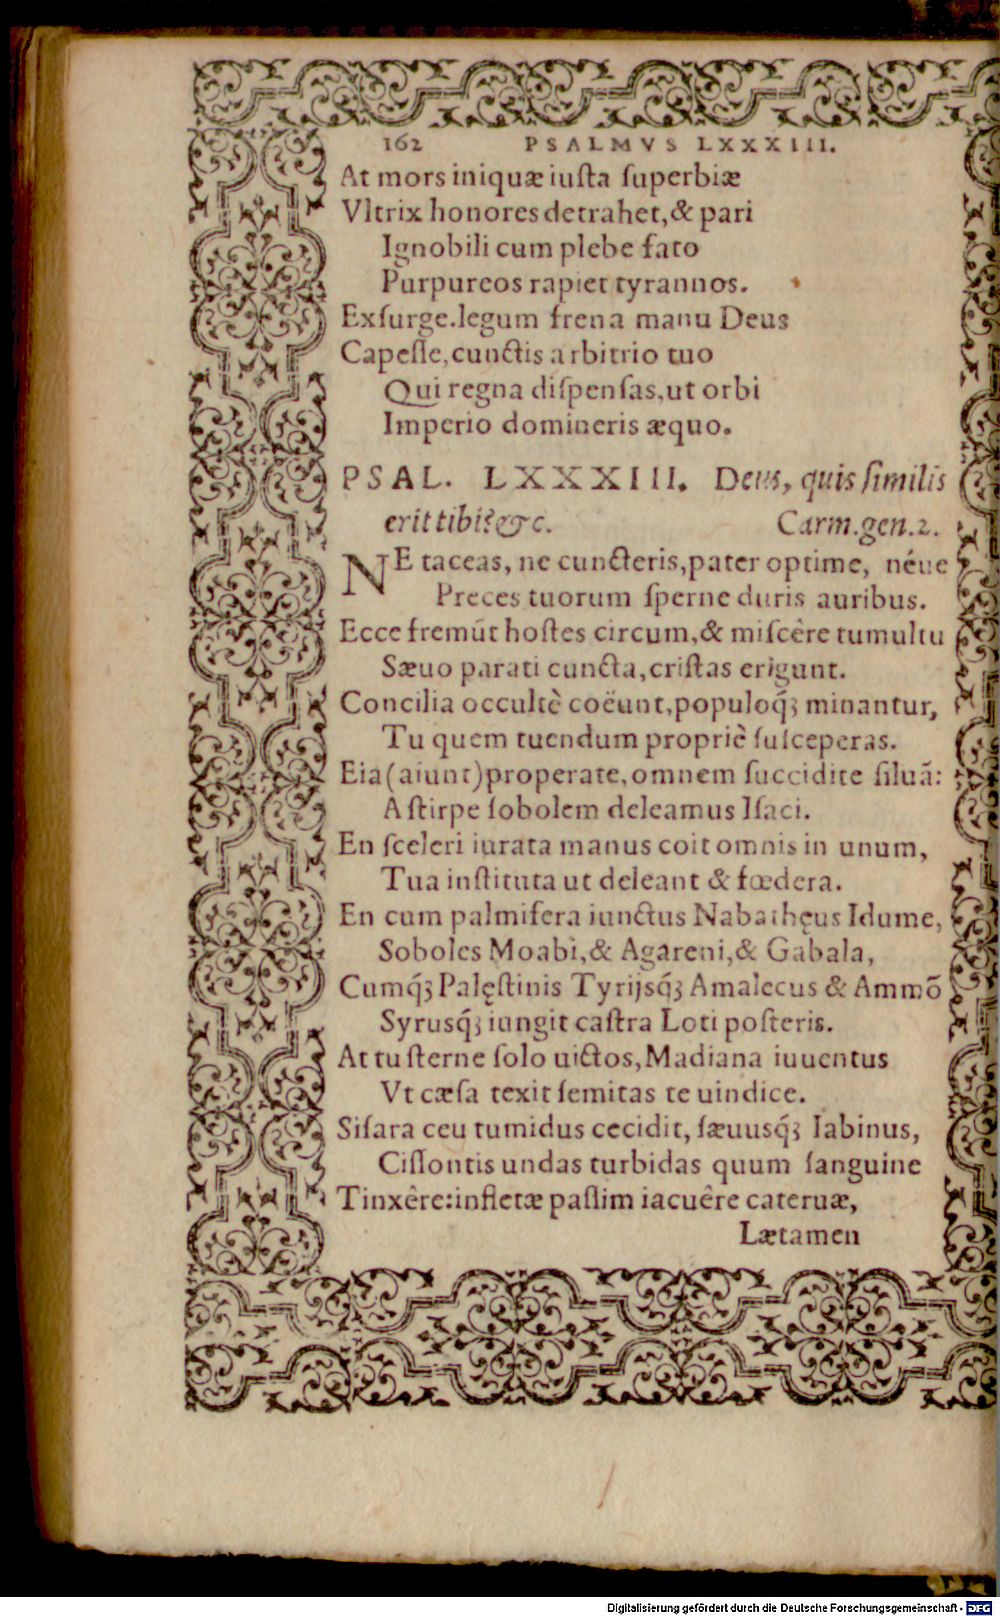 162 PSALMVS LXXXIII.
At mors iniquæ iusta ſuperbiæ
Vltrix honores detrahet, & pari
Ignobili cum plebe fato
Purpureos rapiet tyrannos.
Exſurge.legum frena manu Deus
Capeſſe, cunctis arbitrio tuo
Qui regna diſpenſas, ut orbi
Imperio domineris æquo.
PSAL. LXXXIII. Deus, quis ſimilis
erit tibi? &c. Carm.gen.2.
NE taceas, ne cuncteris, pater optime, néue
Preces tuorum ſperne duris auribus.
Ecce fremũt hoſtes circum, & miſcêre tumultu
Sæuo parati cuncta, criſtas erigunt.
Concilia occultè coëunt, populoq́; minantur,
Tu quem tuendum propriè ſuſceperas.
Eia (aiunt) properate, omnem ſuccidite ſiluã:
A ſtirpe ſobolem deleamus Iſaci.
En ſceleri iurata manus coit omnis in unum,
Tua inſtituta ut deleant & fœdera.
En cum palmifera iunctus Nabathęus Idume,
Soboles Moabi, & Agareni, & Gabala,
Cumq́; Palęſtinis Tyrijsq́; Amalecus & Ammõ
Syrusq́; iungit caſtra Loti poſteris.
At tu ſterne ſolo uictos, Madiana iuuentus
Vt cæſa texit ſemitas te uindice.
Siſara ceu tumidus cecidit, ſæuusq́; Iabinus,
Ciſſontis undas turbidas quum ſanguine
Tinxêre: infletæ paſſim iacuêre cateruæ,
Lætamen
Digitalisierung gefördert durch die Deutsche Forschungsgemeinschaft - DFG